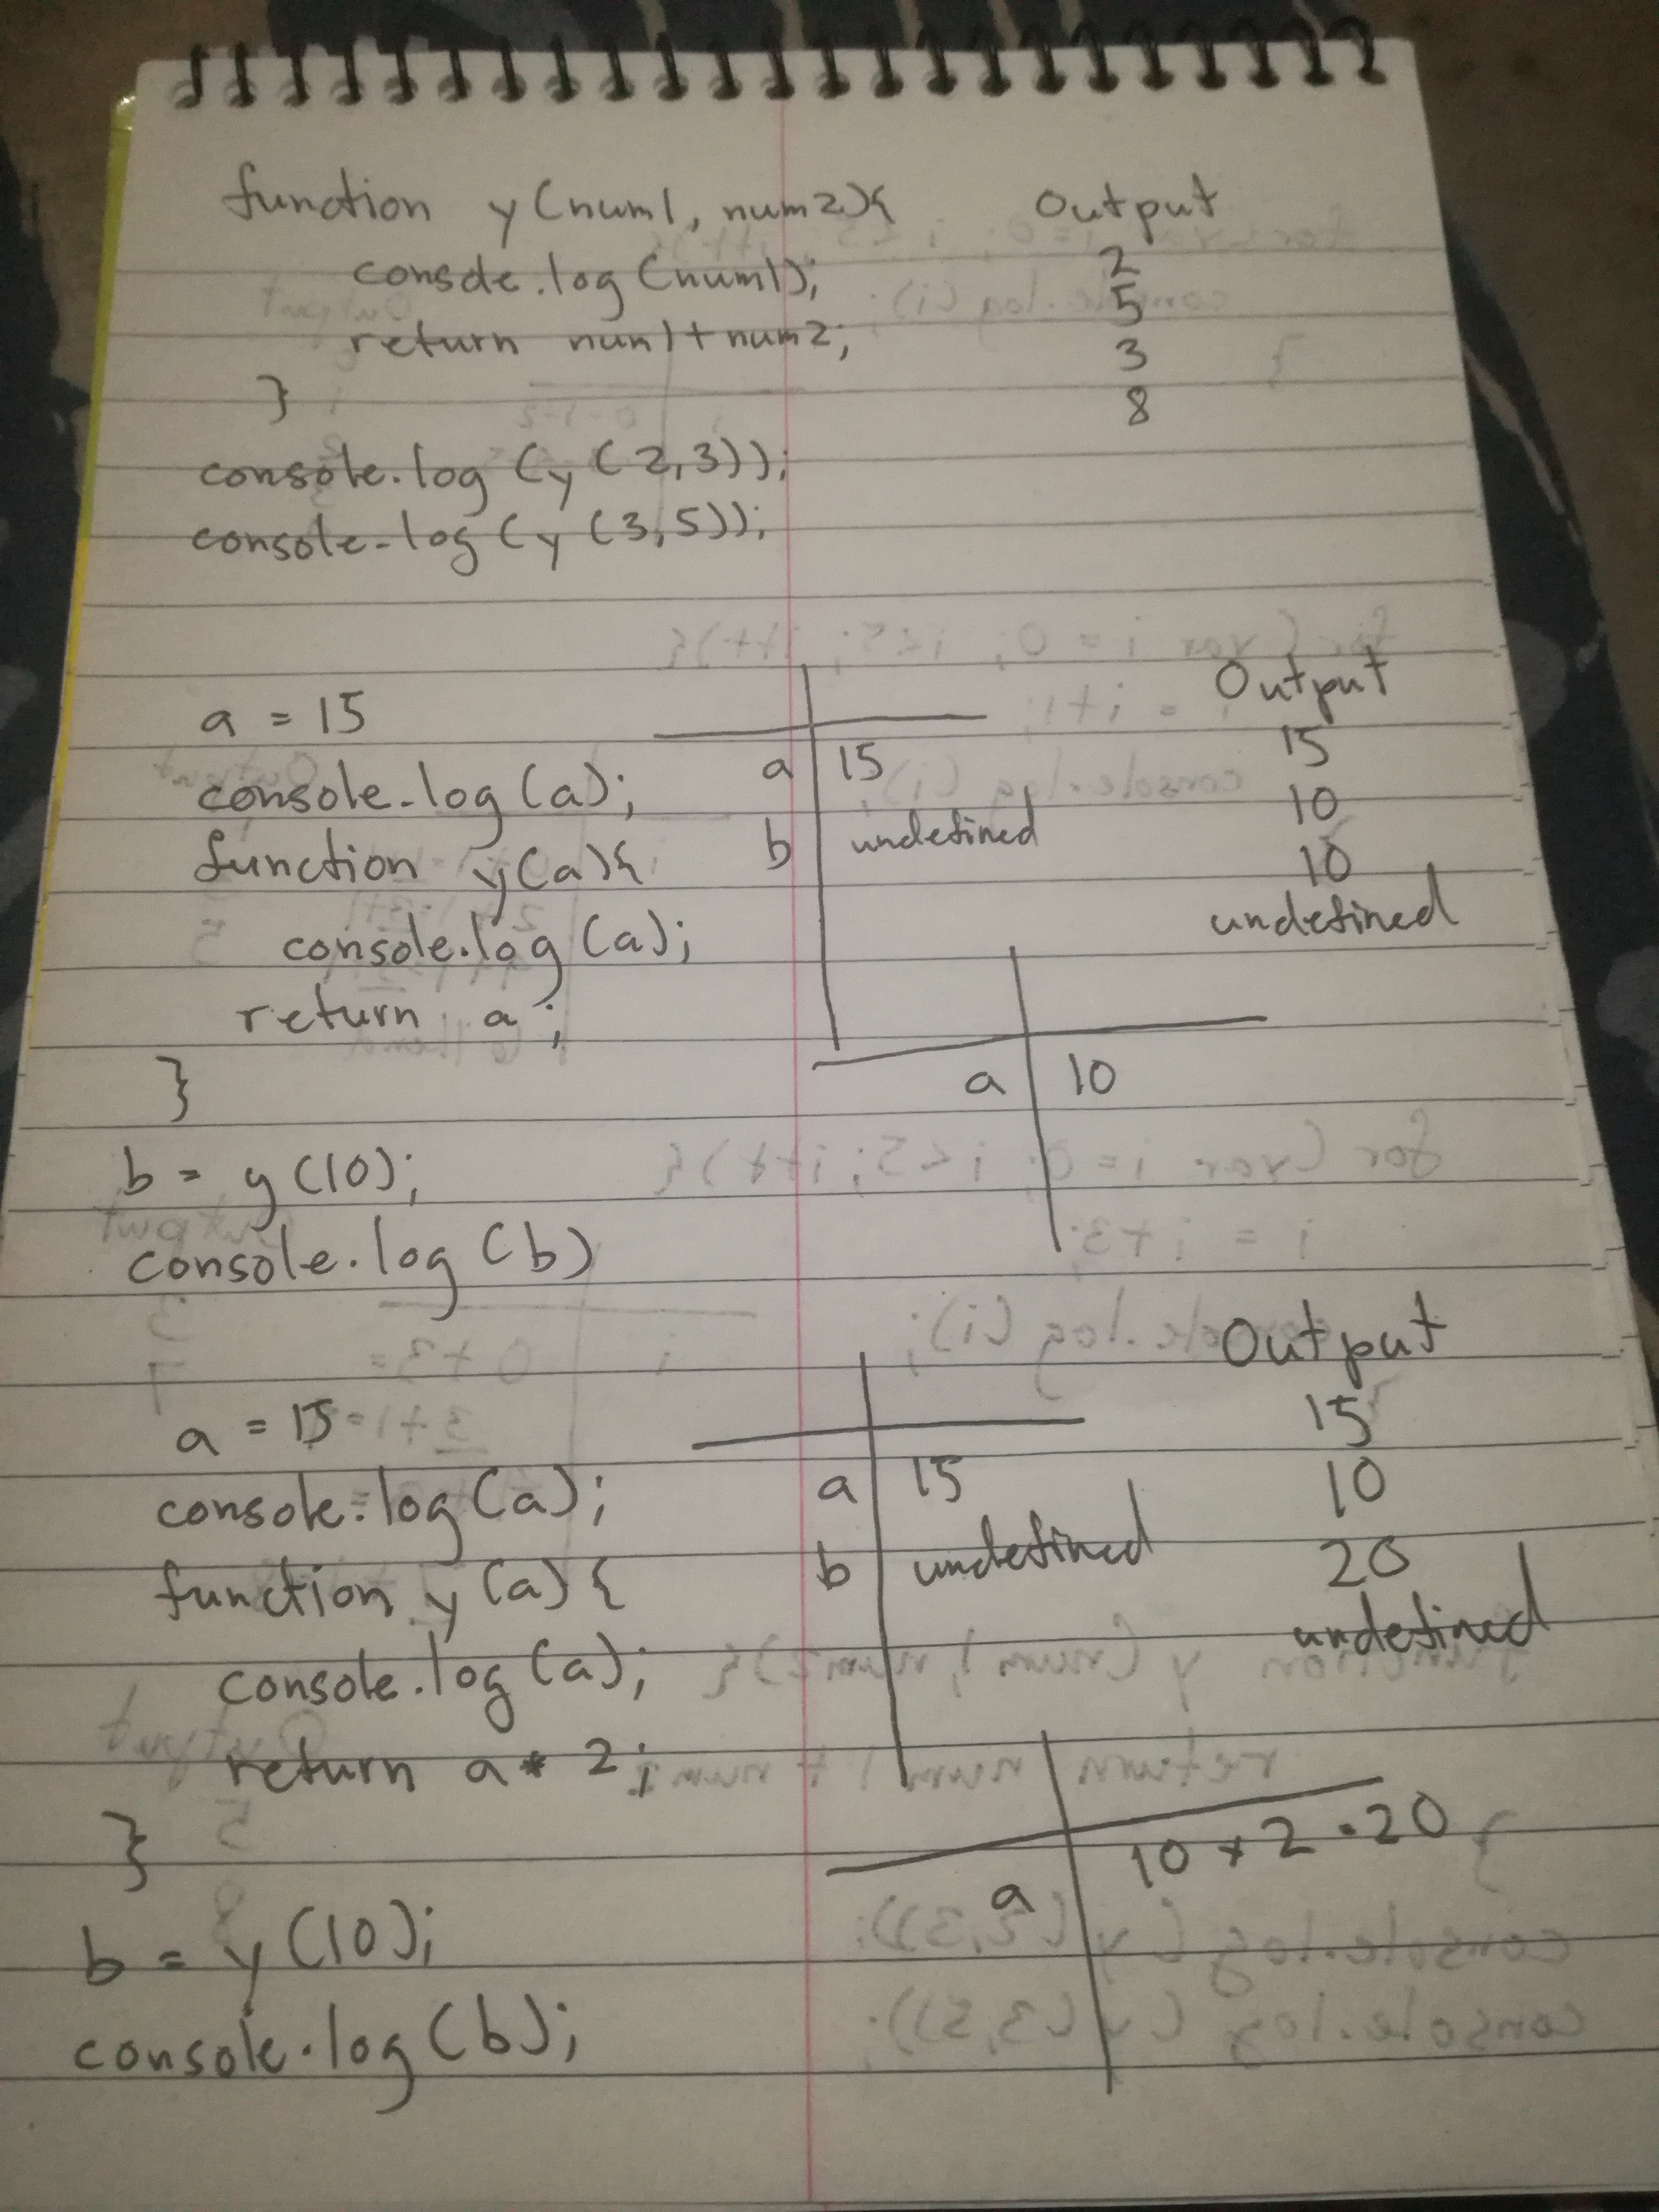 function y(num1, num2){
console.log(num1);
return num1+num2;
}
console.log(y(2,3));
console.log(y(3,5));
Output
2
5
3
8
a = 15
console.log(a);
function y(a){
console.log(a);
return a;
}
b = y(10);
console.log(b)
a 15
b undefined
a 10
Output
15
10
10
undefined
a = 15
console.log(a);
function y(a){
console.log(a);
return a * 2;
}
b = y(10);
console.log(b);
a 15
b undefined
a 10 * 2 = 20
Output
15
10
20
undefined